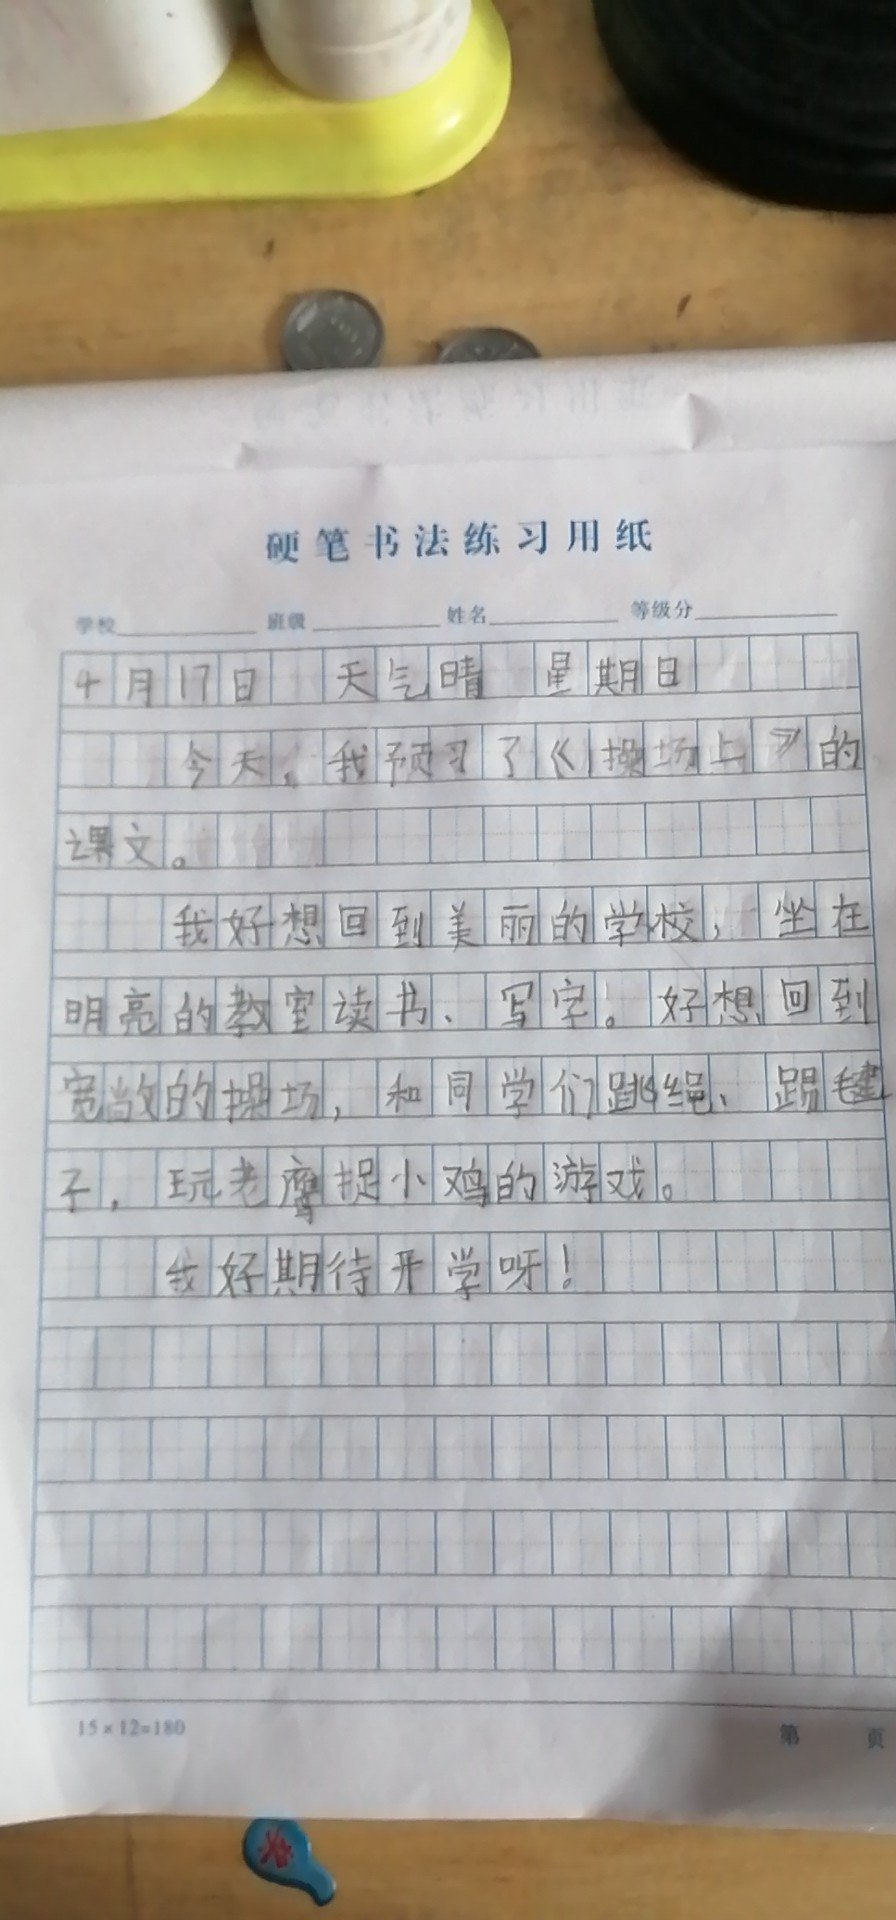 硬笔书法练习用纸
学校 班级 姓名 等级分
4月17日 天气晴 星期日
今天,我预习了《操场上》的
课文。
我好想回到美丽的学校,坐在
明亮的教室读书、写字。好想回到
宽敞的操场,和同学们跳绳、踢毽
子,玩老鹰捉小鸡的游戏。
我好期待开学呀!
15×12=180
第 页